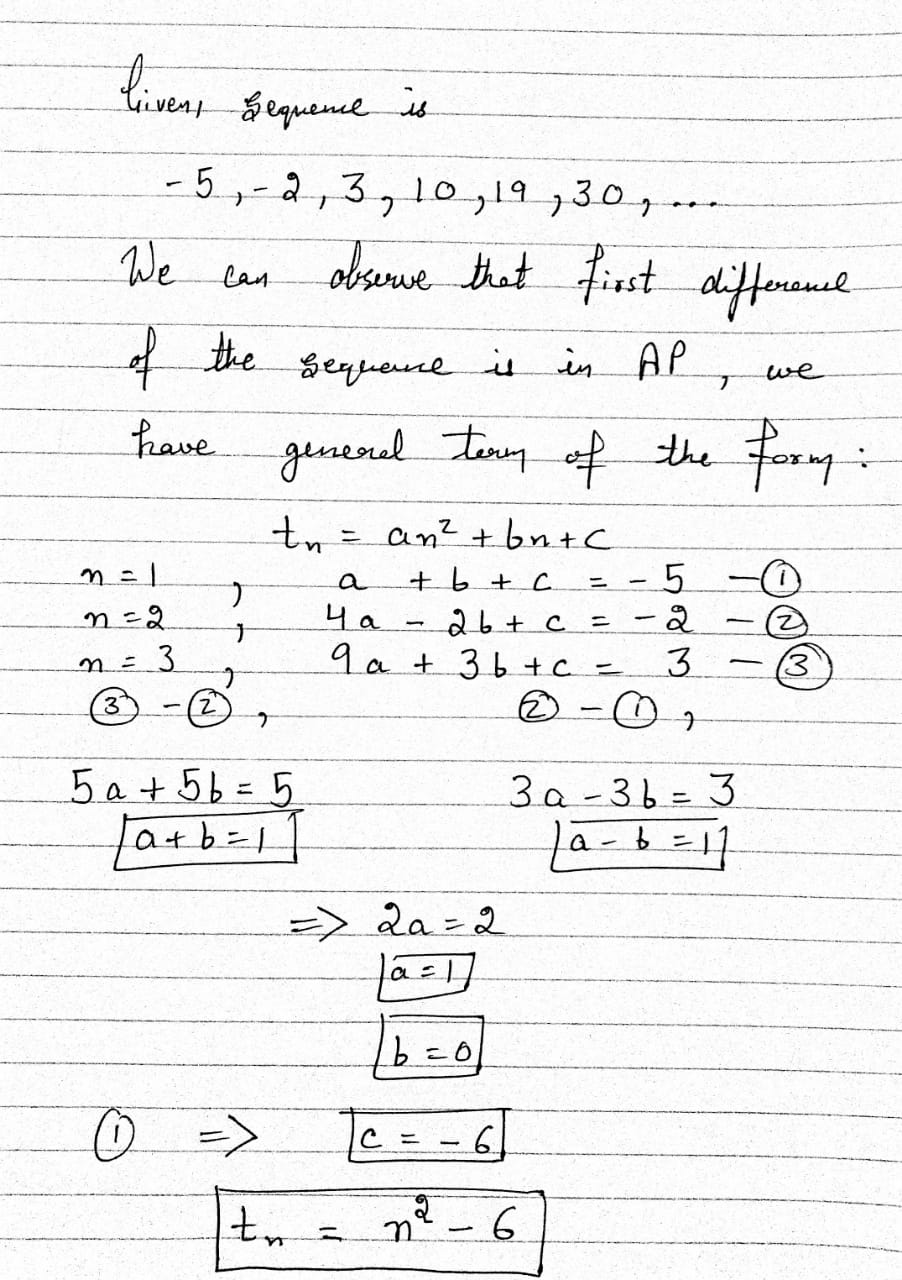 Given, sequence is
-5, -2, 3, 10, 19, 30, ...
We can observe that first difference
of the sequence is in AP, we
have general term of the form:
tₙ = an² + bn + c
n = 1, a + b + c = -5 - ①
n = 2, 4a - 2b + c = -2 - ②
n = 3, 9a + 3b + c = 3 - ③
③ - ②, ② - ①,
5a + 5b = 5 3a - 3b = 3
a + b = 1 a - b = 1
=> 2a = 2
a = 1
b = 0
① => c = -6
tₙ = n² - 6